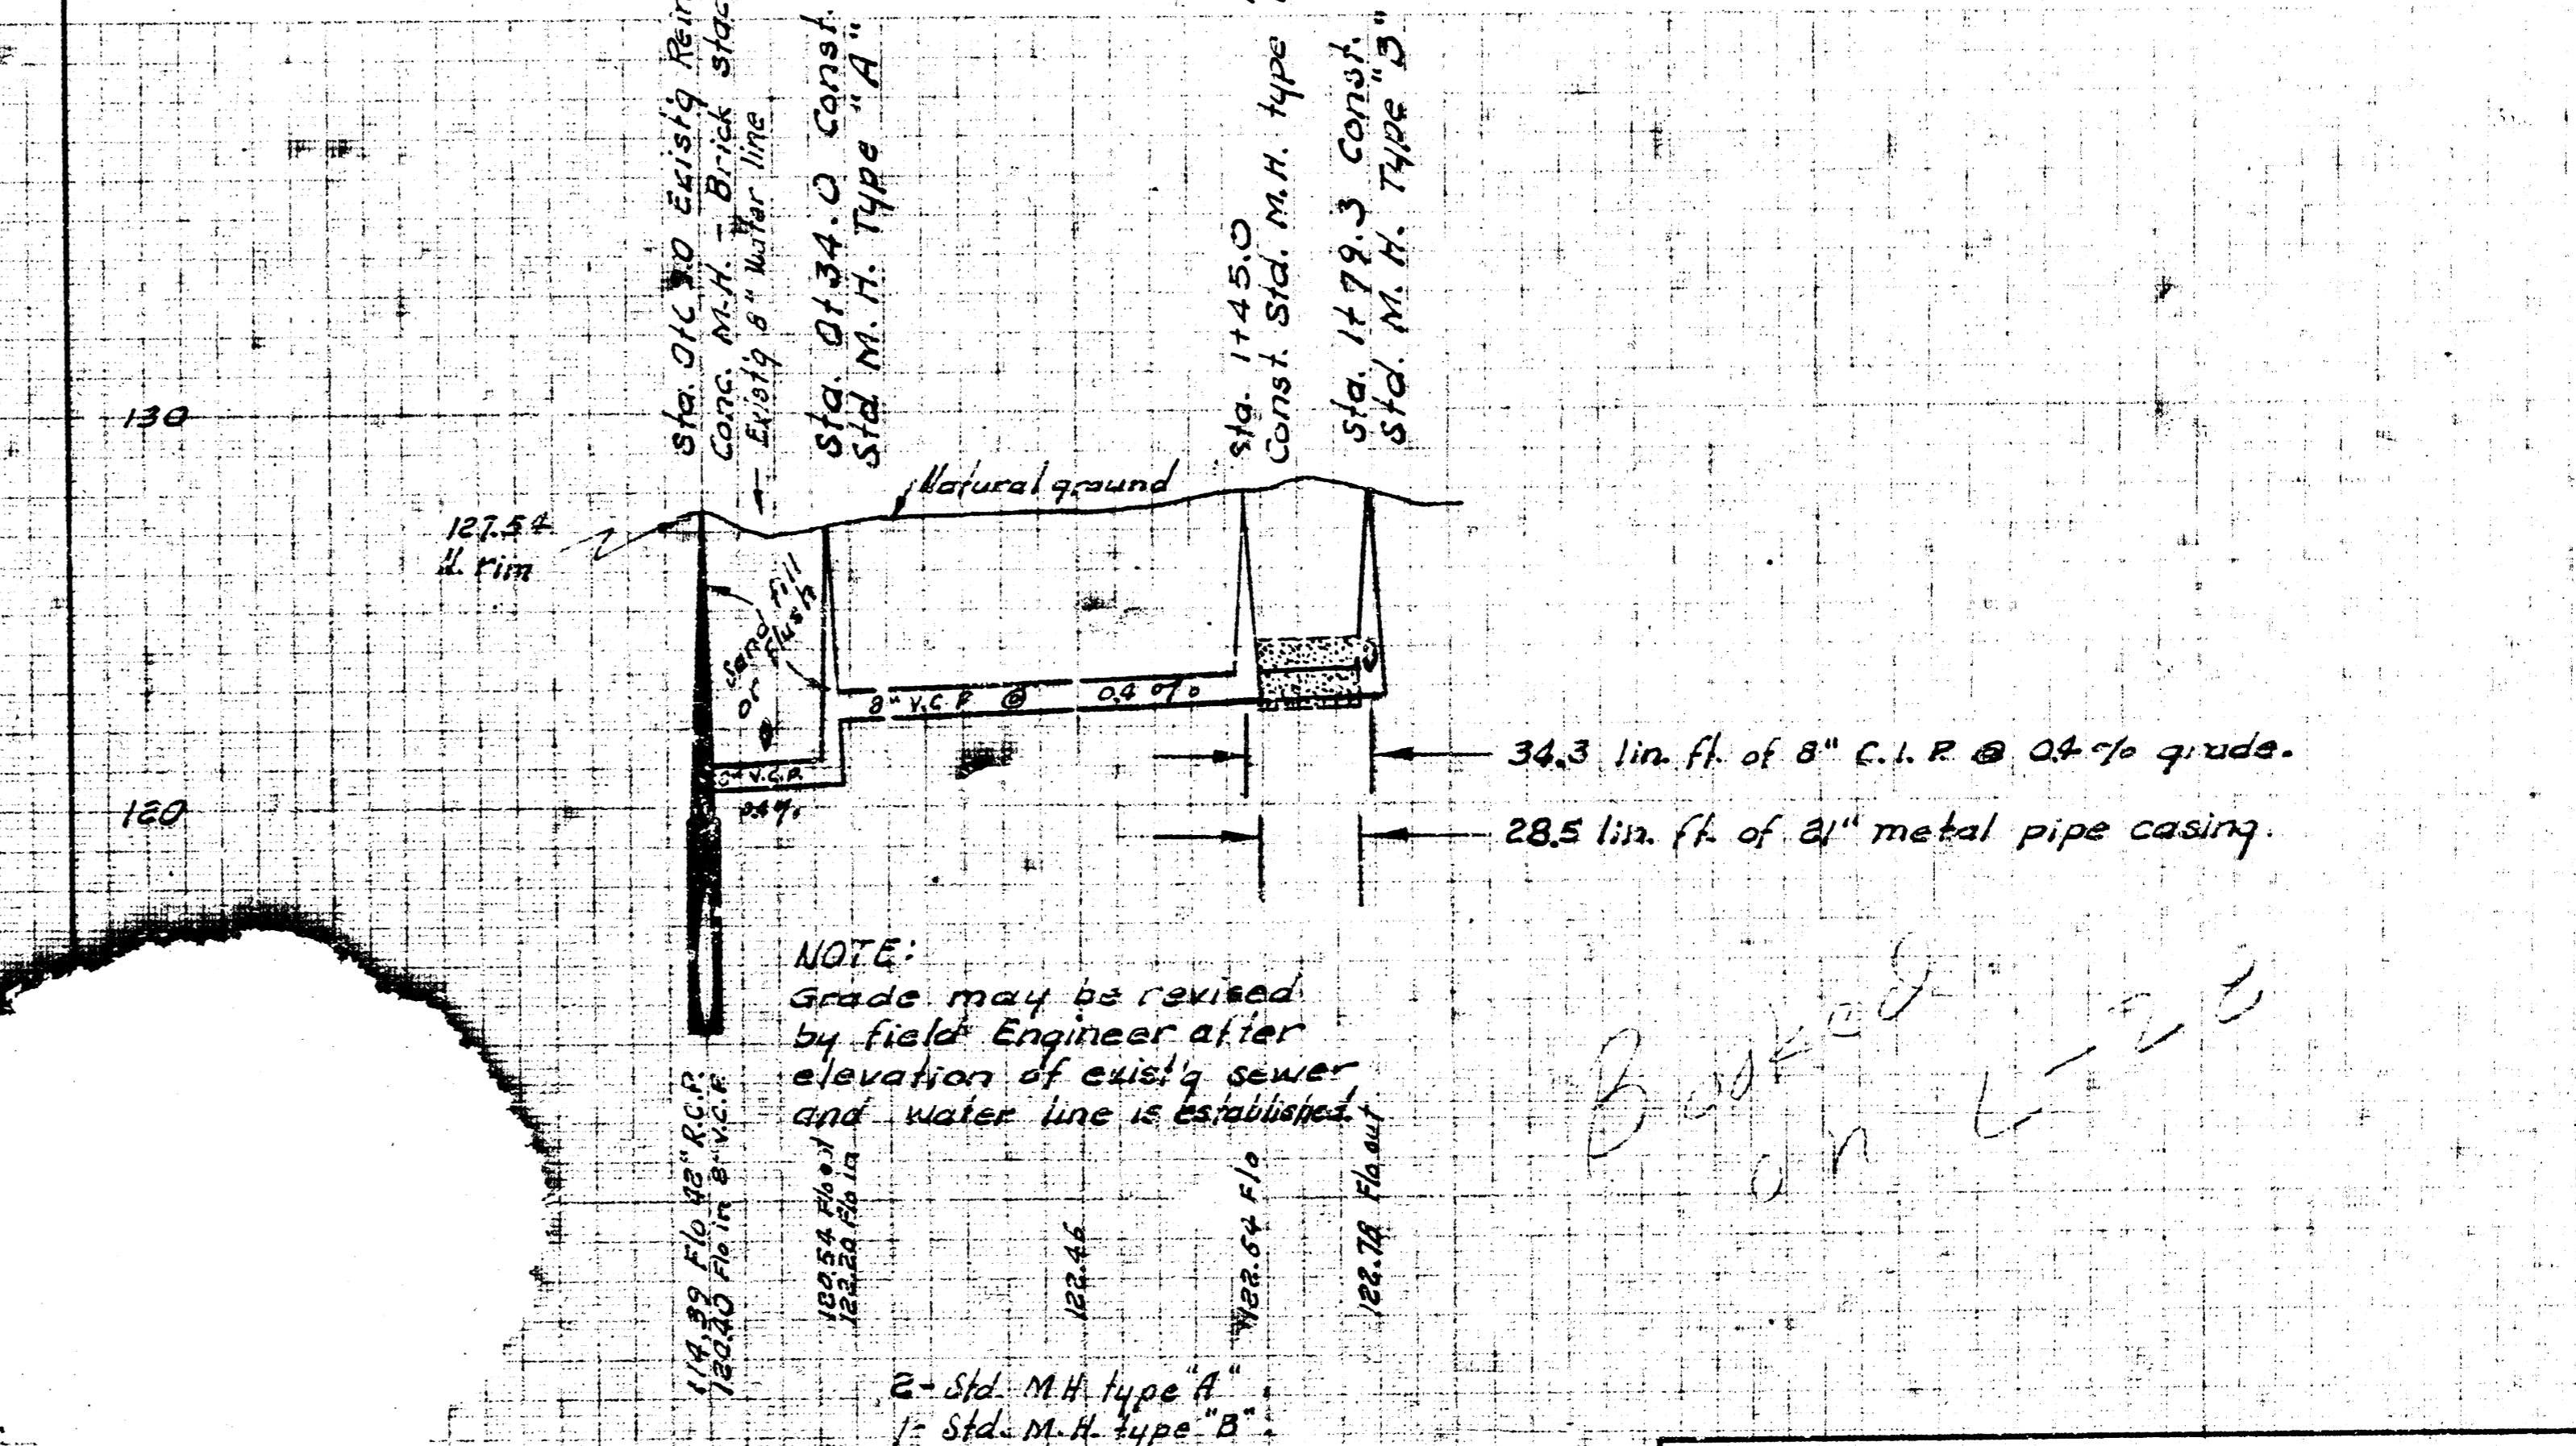 Sta. 0+ .0 Exist'g Rein
Conc. M.H. - Brick stac
Exist'g 8" Water line
Sta. 0+34.0 Const.
Std M.H. Type "A"
Sta. 1+45.0
Const. Std. M.H. type
Sta. 1+79.3 Const.
Std. M.H. Type "B"
130
Natural ground
127.54
rim
Sand fill
or flush
8" V.C.P. @ 0.4 %
8" V.C.P.
0.4%
120
34.3 lin. ft. of 8" C.I.P. @ 0.4 % grade.
28.5 lin. ft. of 21" metal pipe casing.
NOTE:
Grade may be revised
by field Engineer after
elevation of exist'g sewer
and water line is established.
114.39 Flo 42" R.C.P.
120.40 Flo in 8" V.C.P.
120.54 Flo out
122.20 Flo in
122.46
122.64 Flo
122.78 Flo out
Booked
on L-20
2- Std. M.H. type "A".
1- Std. M.H. type "B".